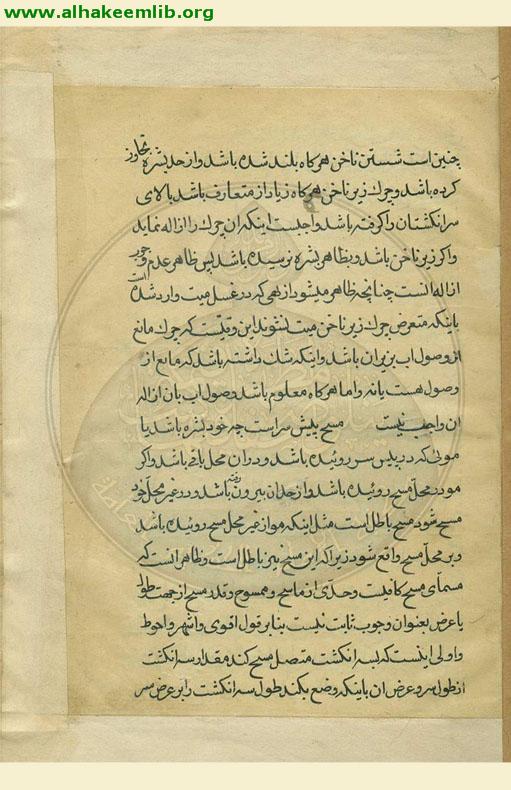 www.alhakeemlib.org
چنین است شستن ناخن هرکاه بلند شده باشد و از حد بشره تجاوز
کرده باشد و چرك زیر ناخن هرکاه زیاد از متعارف باشد یا لای
سر انکشتان را کرفته باشد واجبست اینکه ان چرك را ازاله نماید
و اکر زیر ناخن باشد و بظاهر بشره نرسیده باشد پس ظاهر عدم وجوب
ازاله است چنانچه ظاهر میشود از نهی که در غسل میت وارد شده
باینکه متعرض چرك زیر ناخن میت نشوند این وقتیست که چرك مانع
از وصول اب بزیر ان باشد و اینکه شك داشته باشد که مانع از
وصول هست یا نه و اما هرکاه معلوم باشد وصول اب بان ازاله
ان واجب نیست مسح پیش سر است چه خود بشره باشد یا
موئی که در پیش سر روئیده باشد و در ان محل باقی باشد و اکر
مو در محل مسح روئیده باشد و از حد ان بیرون رفته باشد و در غیر محل خود
مسح شود مسح باطل است مثل اینکه مو از غیر محل مسح روئیده باشد
و بر محل مسح واقع شود زیرا که این مسح نیز باطل است و ظاهر انست که
مسمای مسح کافیست و حدی از ماسح و ممسوح و قدر مسح از جهت طول
یا عرض بعنوان وجوب ثابت نیست بنابر قول اقوی و اشهر و احوط
و اولی اینست که بسه انکشت متصل مسح کند مقدار سه انکشت
از طول سر و عرض ان باینکه وضع بکند طول سه انکشت را بر عرض سر